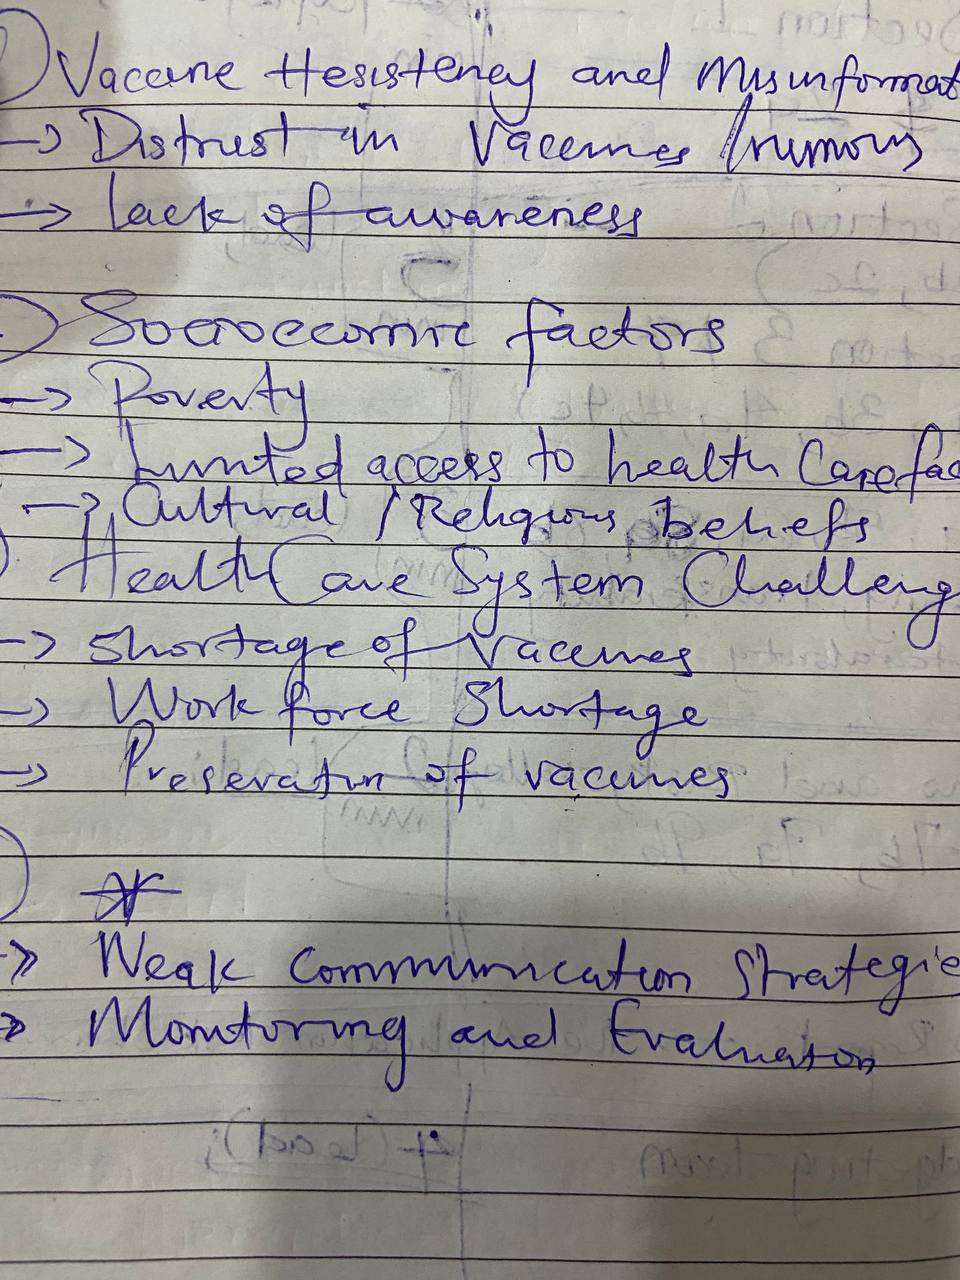 Vaccine Hesistency and Misinformat
→ Distrust in Vaccines /rumours
→ lack of awareness
Socioeconomic factors
→ Poverty
→ Limited access to health Care fac
→ Cultural / Religious beliefs
HealthCare System Challeng
→ Shortage of Vaccines
→ Work force Shortage
→ Preservation of vaccines
→ Weak Communication Strategie
→ Monitoring and Evaluation